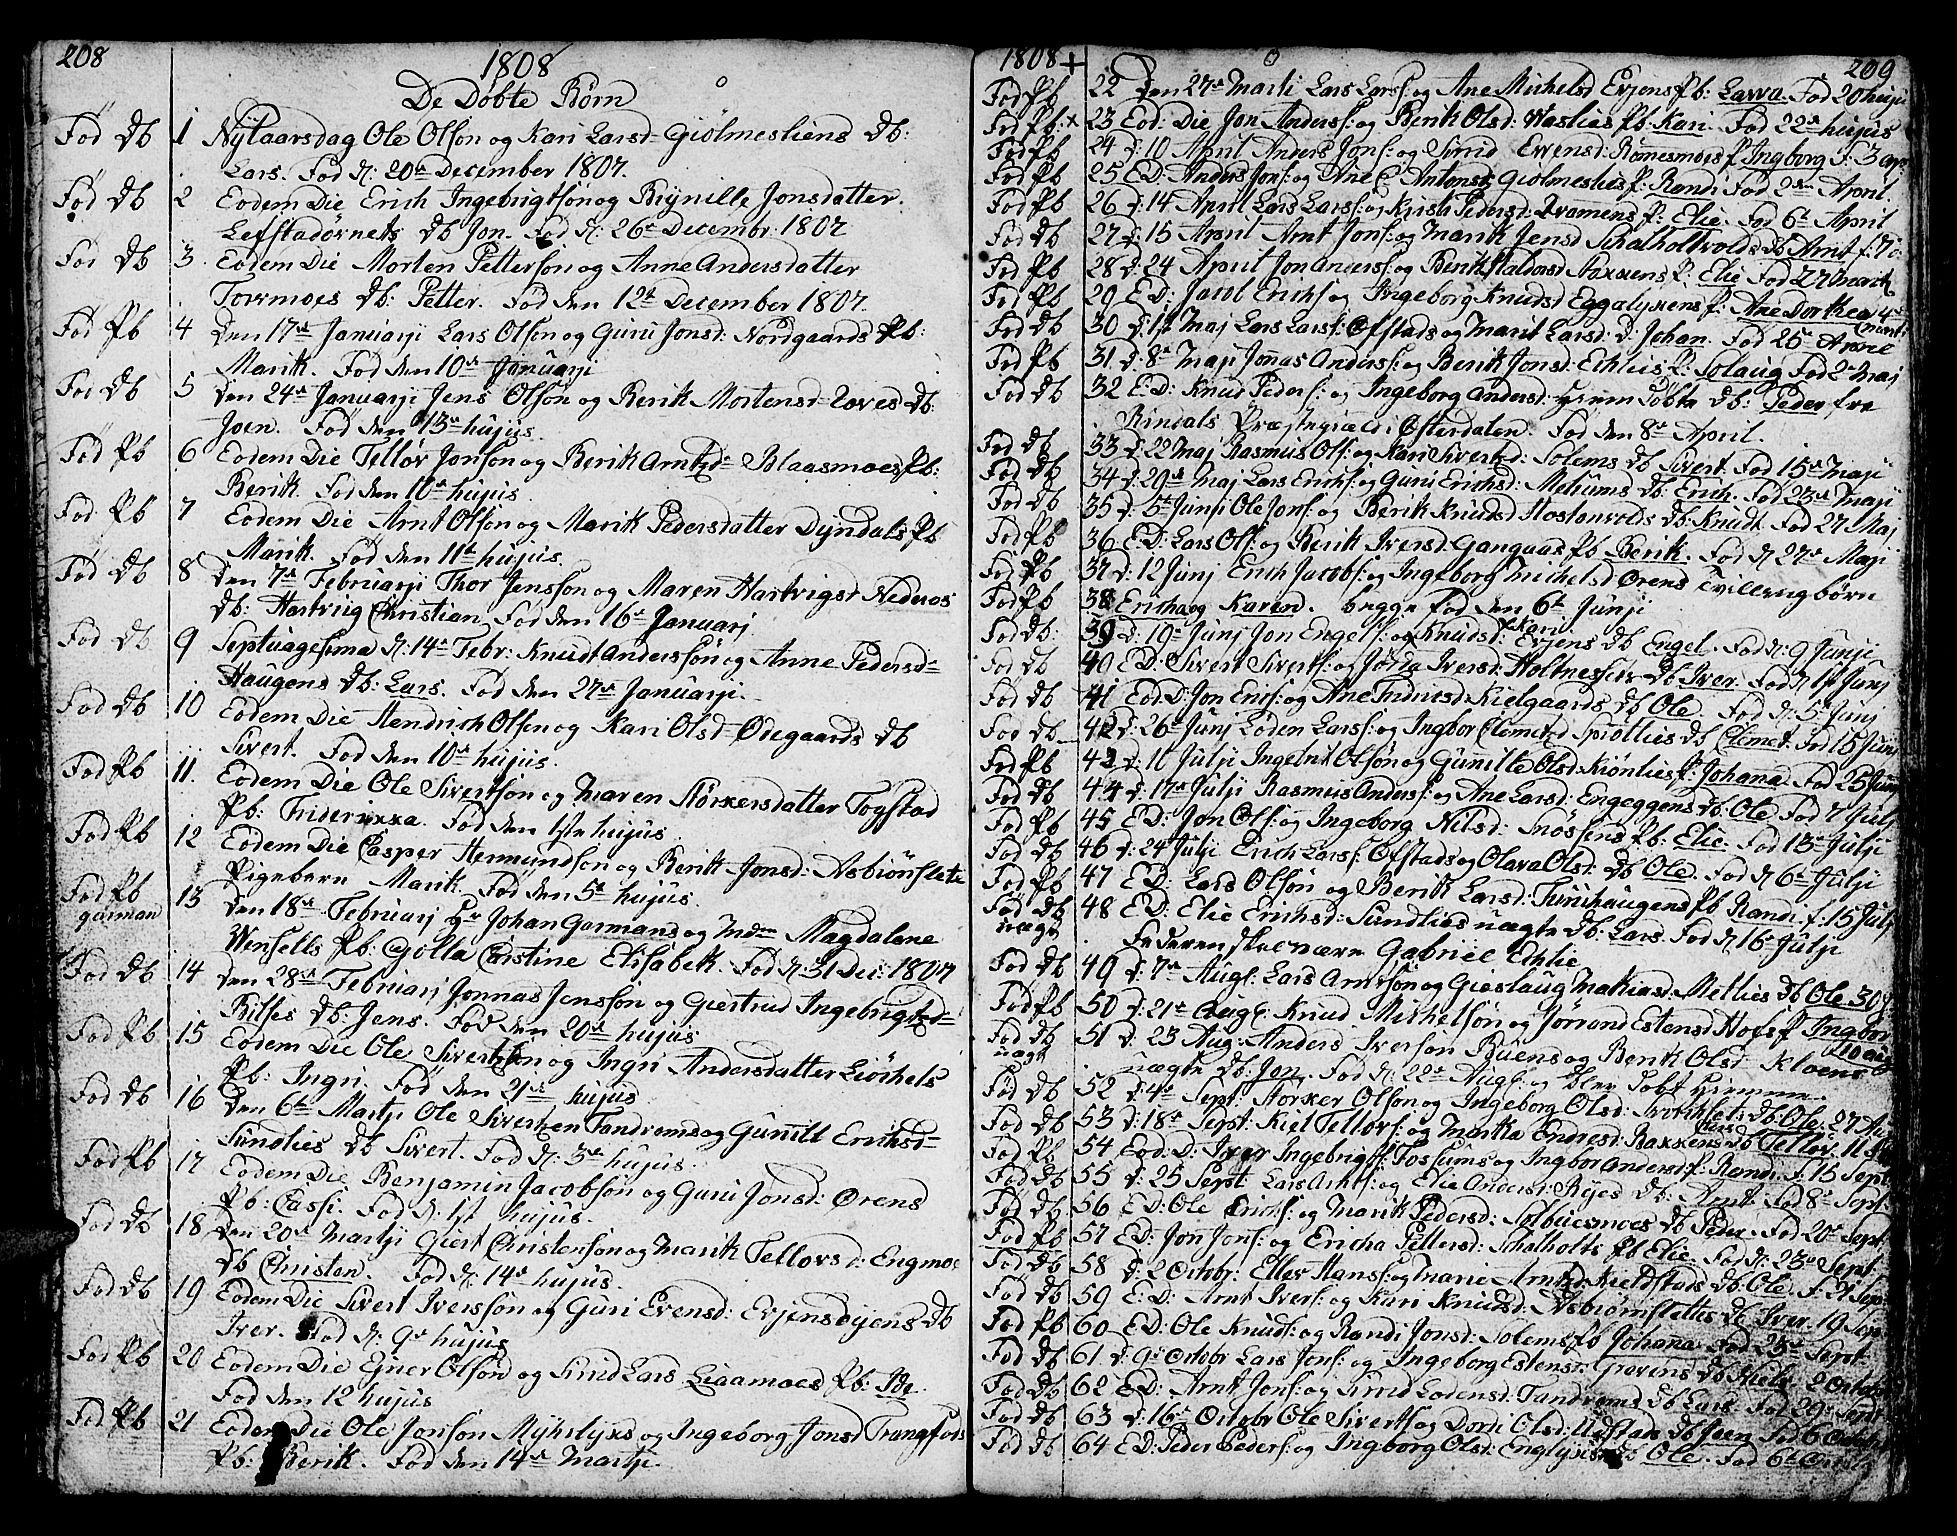 208
1808
De Døbte Børn
Fød Db 1 Nytaarsdag Ole Olsøn og Kari Larsd: Giølmesliens Db:
Lars. Fød d: 20de December 1807.
Fød Db 2 Eodem Die Erich Ingebrigtsøn og Brynille Jonsdatter
Lefstadørnets Db Jon. Fød d: 26de Decembr: 1807
Fød Db 3 Eodem Die Morten Pettersøn og Anne Andersdatter
Toermoes Db: Petter. Fød den 12te December 1807.
Fød Pb 4 Den 17de Januarji Lars Olsøn og Guru Jonsd: Nordgaards Pb:
Marit. Fød den 10de Januarji
Fød Db 5 Den 24de Januarji Jens Olsøn og Berit Mortensd: Loves Db:
Joen. Fød den 13de hujus.
Fød Pb 6 Eodem Die Tellør Jonsøn og Berit Arntzd: Blaasmoes Pb:
Berit. Fød den 10de hujus.
Fød Pb 7 Eodem Die Arnt Olsøn og Marit Pedersdatter Dyndals Pb
Marit. Fød den 11te hujus.
Fød Db 8 Den 7de Februarji Thor Jensøn og Maren Hartvigsd Nederos
Db: Hartvig Christian. Fød den 16de Januarj
Fød Db 9 Septuagesima d: 14de Febr: Knudt Andersøn og Anne Pedersd:
Haugens Db: Lars. Fød den 27de Januarji.
Fød Db 10 Eodem Die Hendrich Olsøn og Kari Olsd: Ødegaards Db
Sivert. Fød den 10de hujus.
Fød Pb 11. Eodem Die Ole Sivertsøn og Maren Størkersdatter Togstad
Pb: Friderikka. Fød den 1ste hujus.
Fød Pb 12 Eodem Die Casper Hermundsøn og Berit Jonsd: Asbiønslete
Pigebarn Marit. Fød den 5te hujus.
Fød Pb 13 Den 18de Februarj Hr Johan Garmans og Mdm Magdalene
garman
Wensells Pb: Golla Christine Elisabet. Fød d: 31 Dec: 1807
Fød Db 14 Den 28de Februarj Jonnas Jensøn og Giertrud Ingebrigtsd:
Bilses Db: Jens. Fød den 20de hujus
Fød Pb 15 Eodem Die Ole Sivertsøn og Ingri Andersdatter Liøkels
Pb: Ingri. Fød den 21de hujus.
Fød Db 16 Den 6te Martji Ole Sivertsen Tandrems og Gunill Erichsd:
Sundlies Db Sivert. Fød d: 3de hujus.
Fød Pb 17 Eodem Die Benjamin Jacobsøn og Guru Jonsd: Ørens
Pb: Cassi. Fød d: 1st hujus.
Fød Db 18 Den 20de Martji Giert Christensøn og Marit Tellovsd: Engmoe
Db Christen. Fød d: 14de hujus.
Fød Db 19 Eodem Die Sivert Iversøn og Guri Evensd: Evjensøyens Db
Iver. Fød d: 9de hujus
Fød Pb 20 Eodem Die Ejner Olsøn og Sirid Lars Liaamoes Pb: Ide.
Fød den 12 hujus
Fød Pb 21 Eodem Die Ole Jonsøn Myhrlyks og Ingeborg Jonsd Trangfos
Pb: Berit. Fød den 14de Martji.
1808 + 209
Fød Pb 22 Den 27de Marti Lars Larss: og Ane Michelsd Evjens Pb: Larva. Fød 20 hujus
Fød Pb: x 23 Eod: Die Jon Anders: og Berit Olsd: Waslies Pb: Kari. Fød 22de hujus
Fød Pb 24 d: 10 April Anders Jons: og Sirrid Evensd: Romesmoes P. Ingborg f: 3 apr
Fød Pb 25 ED: Anders Jons: og Ane Antonsd Giølmeslies P: Randi Fød 2den April
Fød Pb 26 d: 14 April Lars Larss: og Kirsti Pedersd: Dramens P: Elie. Fød 6te April
Fød Db 27 d: 15 April Arnt Jons: og Marit Jensd Schalholtvolds Db Arnt f: 7
Fød Pb 28 d: 24 April Jon Anders: og Berit Halvorsd Stokkens P: Elie Fød 27 Marti
Fød Pb 29 ED: Jacob Erichs: og Ingeborg Knudsd Eggalykkens P: Ane Dorthea 4de
Marti
Fød Db 30 d: 1st Maj Lars Larss: Ofstads og Marit Larsd: D: Johan. Fød 25de Aprile
Fød Pb 31 d: 8de Maji Jonas Anders: og Berit Jonsd: Ethlies P: Solaug Fød 2de Maj
Fød Db 32 ED: Knud Peders: og Ingeborg Andersd: hjemmdøbte Db: Peder fra
Rindals Præstegiæld i Østerdalen. Fød den 8de April.
Fød Db 33 d: 22 Maj Rasmus Ols: og Kari Sivertsd: Solems Db Sivert. Fød 15de Maji
Fød Db 34 d: 29de Maj Lars Erichs: og Guru Erichsd: Mehums Db: Erich. Fød 23de Maji
Fød Db 35 d: 5te Junji Ole Jons: og Berit Knudsd Hostonvolds Db: Knudt Fød 27 Maj
Fød Pb 36 ED: Lars Ols: og Berit Iversd: Gangaas Pb Berit. Fød d 27de Maji
Fød Pb 37 d: 12 Junj Erich Jacobs: og Ingeborg Michelsd Ørens Tvillingbørn
Fød Pb 38 Ericha og Karen. begge fød den 6te Junji
Fød Db: 39 d: 19de Junj Jon Engels: og Kari Knudsd: Evjens Db Engel. Fød d: 9 Junji
Fød Db 40 ED: Sivert Siverts: og Jørda Iversd: Holtneseter Db Iver. Fød d 1st Junj
Fød Db 41 Eod D: Jon Erics: og Ane Fridricsd: Kielgaards Db Ole. Fød d: 5te Junj
Fød Db 42 d: 26de Junj Loden Larss: og Ingbor Clemetsd Sprotlies Db Clemet. Fød 15 Junj
Fød Pb 43 d: 10 Julji Ingebrit Olsøn og Gunille Olsd: Kiønlies P: Johana. Fød 25 Junj
Fød Db 44 d: 17de Julji Rasmus Anders: og Ane Larsd: Engeggens Db: Ole Fød 7 Julj
Fød Pb 45 ED: Jon Ols: og Ingeborg Nilsd: Snossens Pb: Elie. Fød 13de Julji
Fød Db 46 d: 24 Julji Erich Larss: Ofstads og Olava Olsd: Db Ole. Fød d 6te Julji
Fød Pb 47 ED: Lars Olsøn og Berit Larsd: Tuvihaugens Pb Randi f. 15 Julj
Fød Db 48 ED: Elie Erichsd: Sundlies uægte Db: Lars. Fød d 16de Julji
uægte
Faderen skal være Gabriel Ethlie
Fød Db 49 d: 7de Augs: Lars Arntsøn og Gieslaug Mathiasd: Metlies Db Ole 30
Fød Pb 50 d: 21de Augs: Knud Michelsøn og Jørrand Estensd Hofs P Ingbor
Fød Db 51 d: 23 Aug: Anders Iversøn Buens og Berit Olsd: Kloens
uægte
uægte Db: Jon. Fød d: 22de Augs: og blev døbt hiemme.
Fød Db 52 d: 4de Sept: Størker Olsøn og Ingeborg Olsd: Db: Ole. 27 A
Fød Db 53 d: 18de Sept: Kiel Tellofs: og Martha Endresd: Bakkens Db Tellov. 11
Fød Pb 54 Eod: D: Iver Ingebrigts: Fossums og Ingbor Andersd P: Randi f. 15 Sept
Fød Db 55 d: 25 Sept: Lars Arnts: og Elie Andersd: Ryes Db: Arnt. Fød 8de Sept:
Fød Db 56 ED: Ole Erichs: og Marit Pedersd: Solbuesmoes Db Peder. Fød 20de Sept:
Fød Pb 57 ED: Jon Jons: og Ericha Pettersd: Schalholts Pb Elie. Fød d: 23de Sept:
Fød Db 58 d: 2 Octobr: Ellev Hans: og Marie Arntzd: Kieldstads Db: Ole. f: 21 Sep
Fød Db 59 E: D: Arnt Ivers: og Kari Knudsd: Asbiørnslettes Db Iver. 19 Sept
Fød Pb 60 ED: Ole Knuds: og Randi Jonsd: Solems Pb Johana. Fød 25de Sept:
Fød Db 61 d: 9de Octobr Lars Jons: og Ingeborg Estensd: Grevens Db Niels. 2 Octob
Fød Db 62 ED: Arnt Jons: og Sirrid Lodensd: Tandrems Db Lars. Fød 29de Sept
Fød Db 63 d: 16de Octobr Ole Siverts: og Dordi Olsd: Udstads Db Joen Fød 6 Octob
Fød Db 64 ED: Peder Peders: og Ingborg Olsd: Englykkens Db Ole. Fød 6te Octob